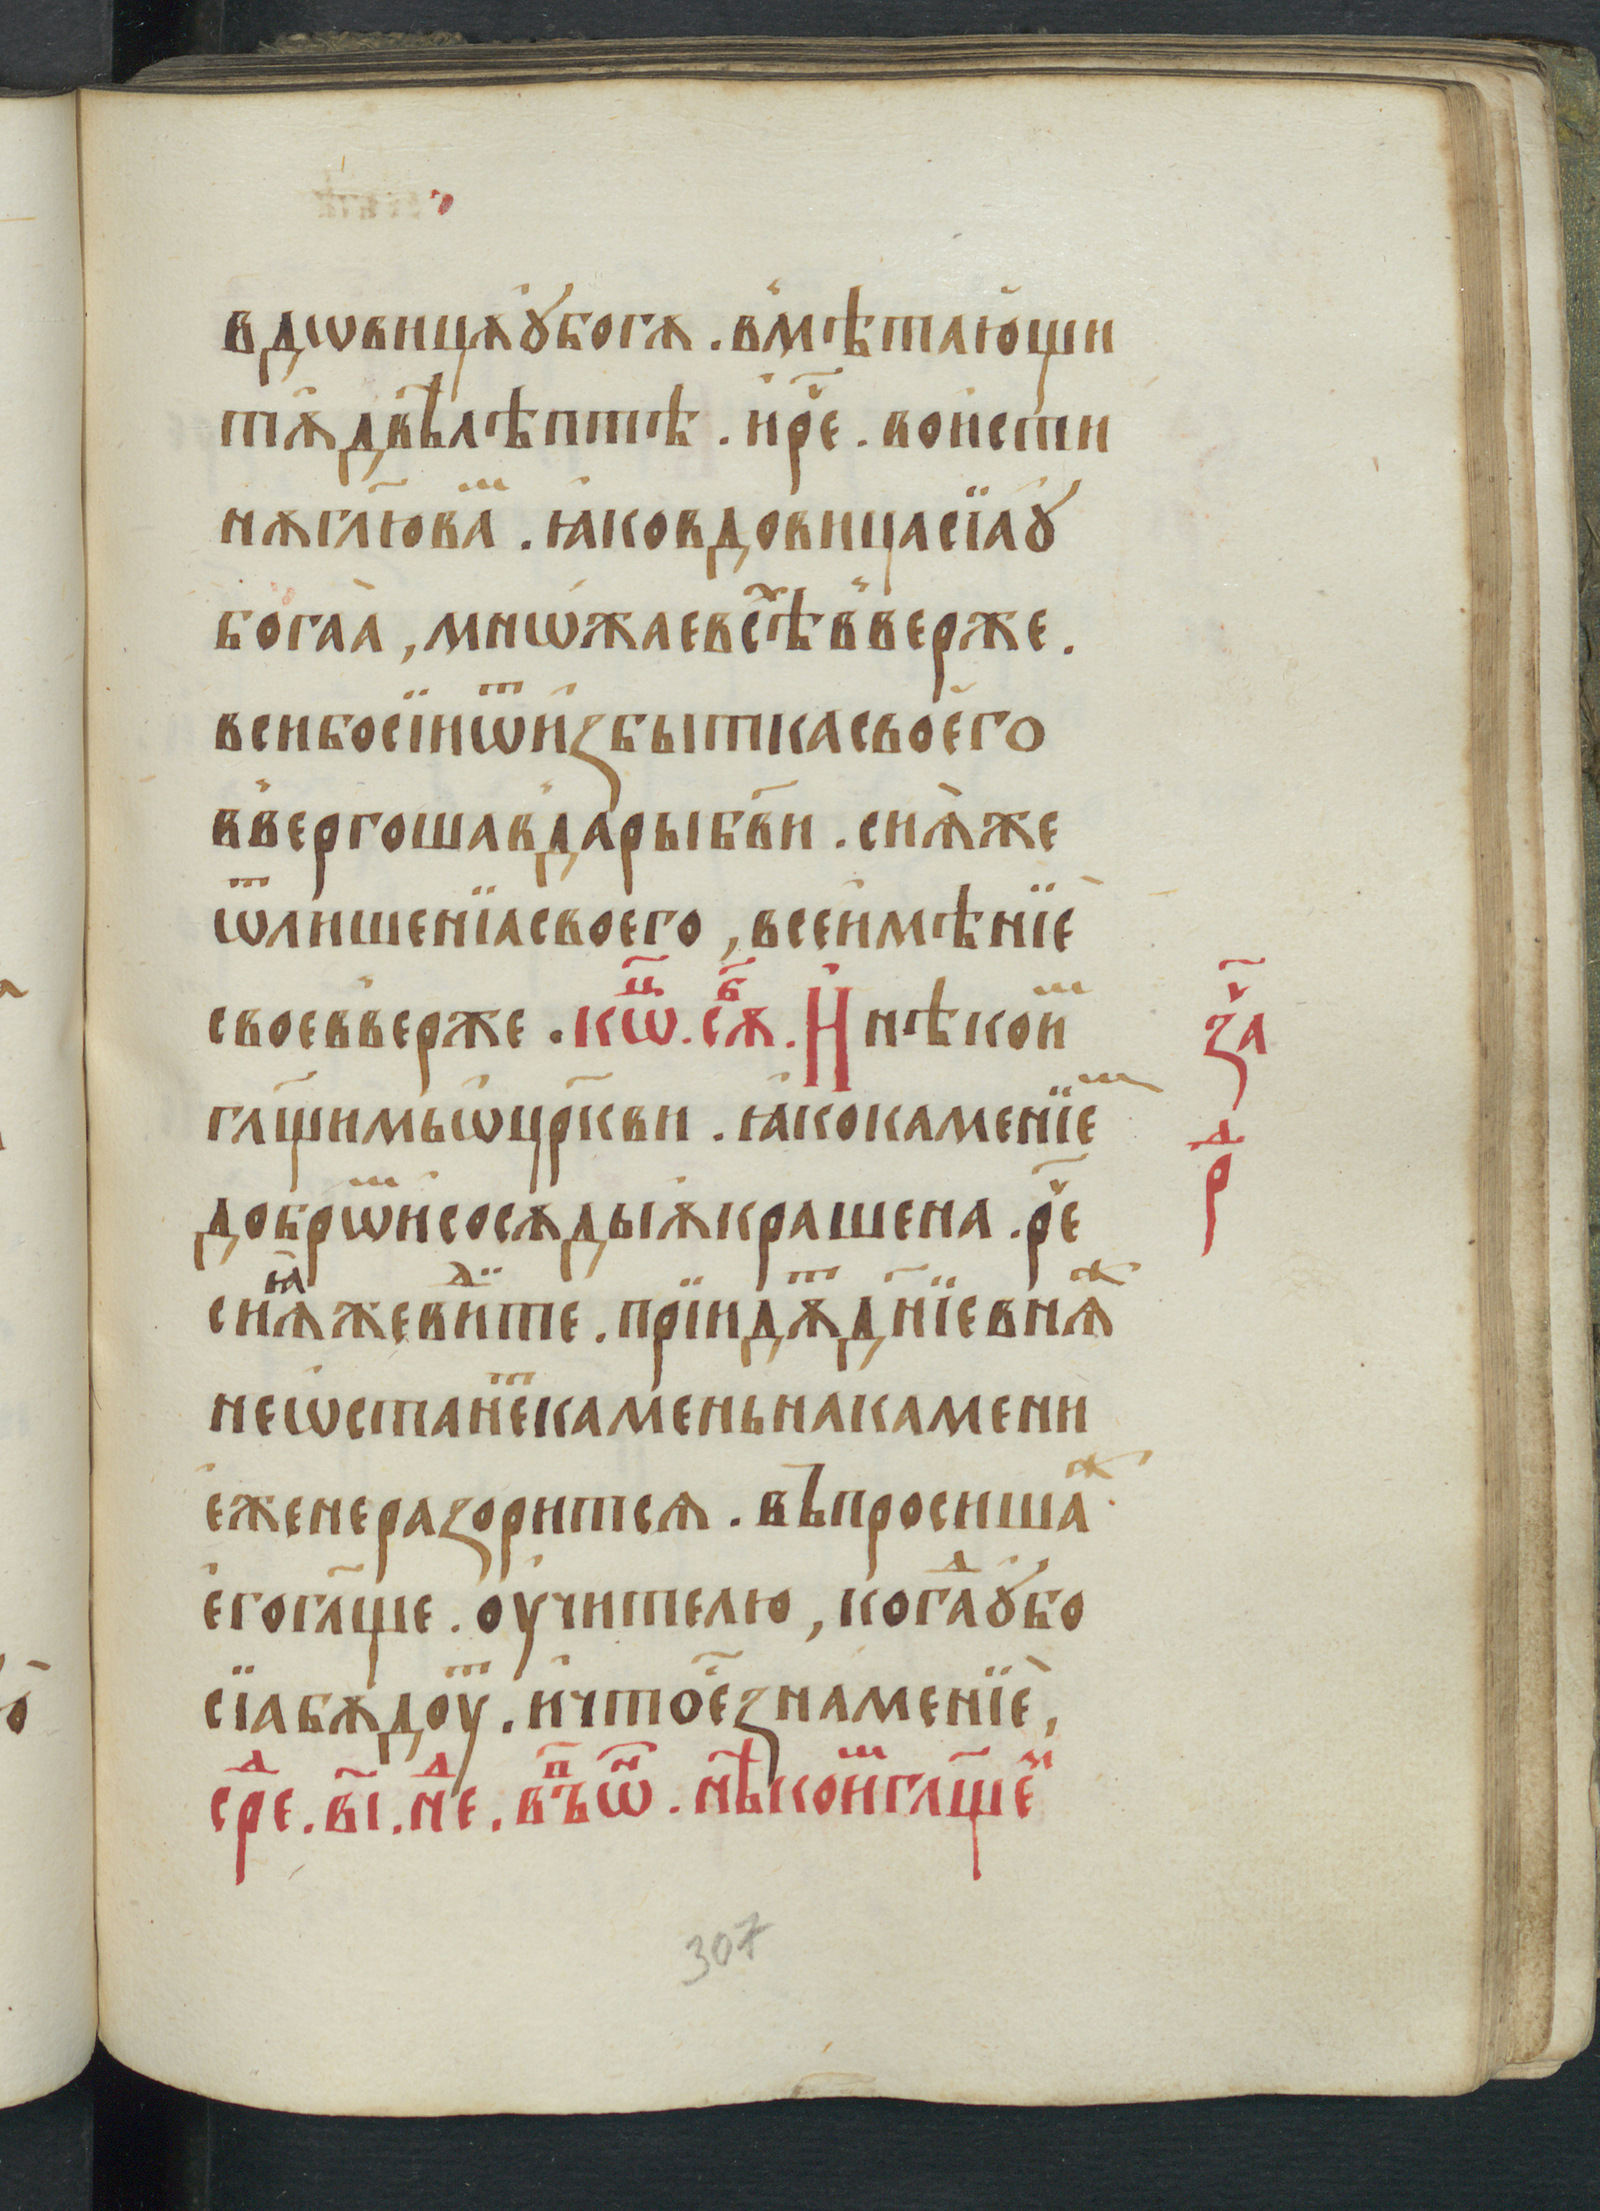 вдѡвицѫ ꙋ҆богѫ . в̾мѣтаю҆щи
тꙋ̀ двѣ̀ лѣптѣ . и҆ рⷱ҇е . вои҆сти
нѫ гл҃ю ваⷨ . ꙗ҆ко вдовица сїа ꙋ҆
бо́гаа̀ , мнѡ́жае всⷯѣ в̾верже .
вси бо сїи ѿ и҆збытка свое҆го
в̾вергоша в̾ дары бж҃и . сиꙗ̀ же
ѿ лишенїа своего , все и҆мѣнїе҆
свое в̾верже . кѡⷰ҇ . сѫⷠ҇ . И҆ нѣкоиⷨ
гл҃щимь ѡ҆ цр҃кви . ꙗ҆ко каменїеⷨ
добрѡⷨ и҆ сосѫды ѫ҆крашена . рⷱ҇е
сиꙗ̀ же виⷣите . прїидѫⷮ дн҃їе в нѧⷤ
не ѡ҆станеⷮ камень на камени
е҆же не разоритсѧ . вѣпросишаⷤ
е҆го гл҃ще . оу҆чителю , когаⷣ ꙋ҆бо
сїа бѫдоуⷮ . и҆ что е҆ знамене҆їе҆ ,
среⷣ . в҃і . неⷣ . въⷫ҇ ѡⷩ҇ . нѣ̀коиⷨ гл҃щеиⷨ
заⷱ҇
рⷣ
307